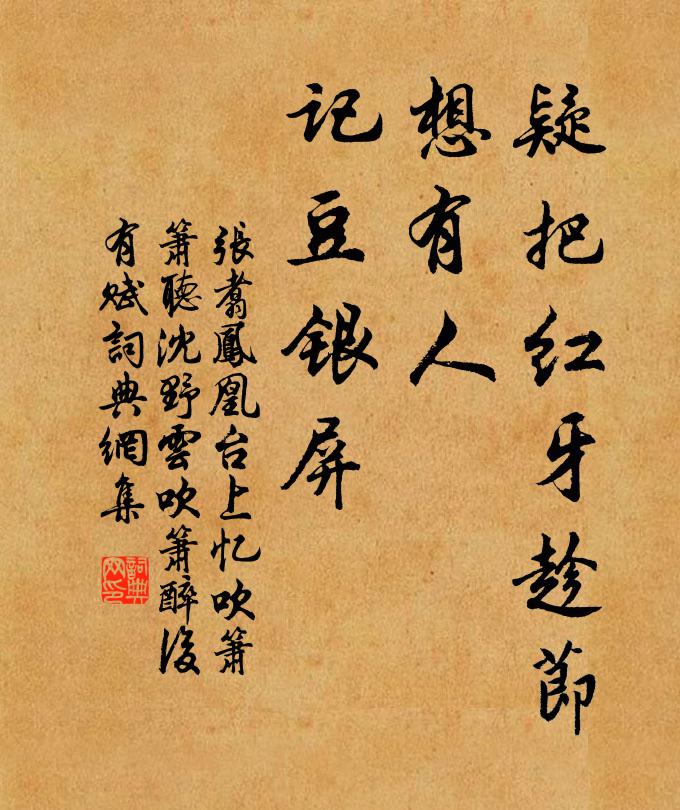 疑把红牙趁節
想有人
记豆银屏
張翥鳳凰台上忆吹簫
簫聽沈野雲吹簫醉後
有赋詞典網集
詞典
网印